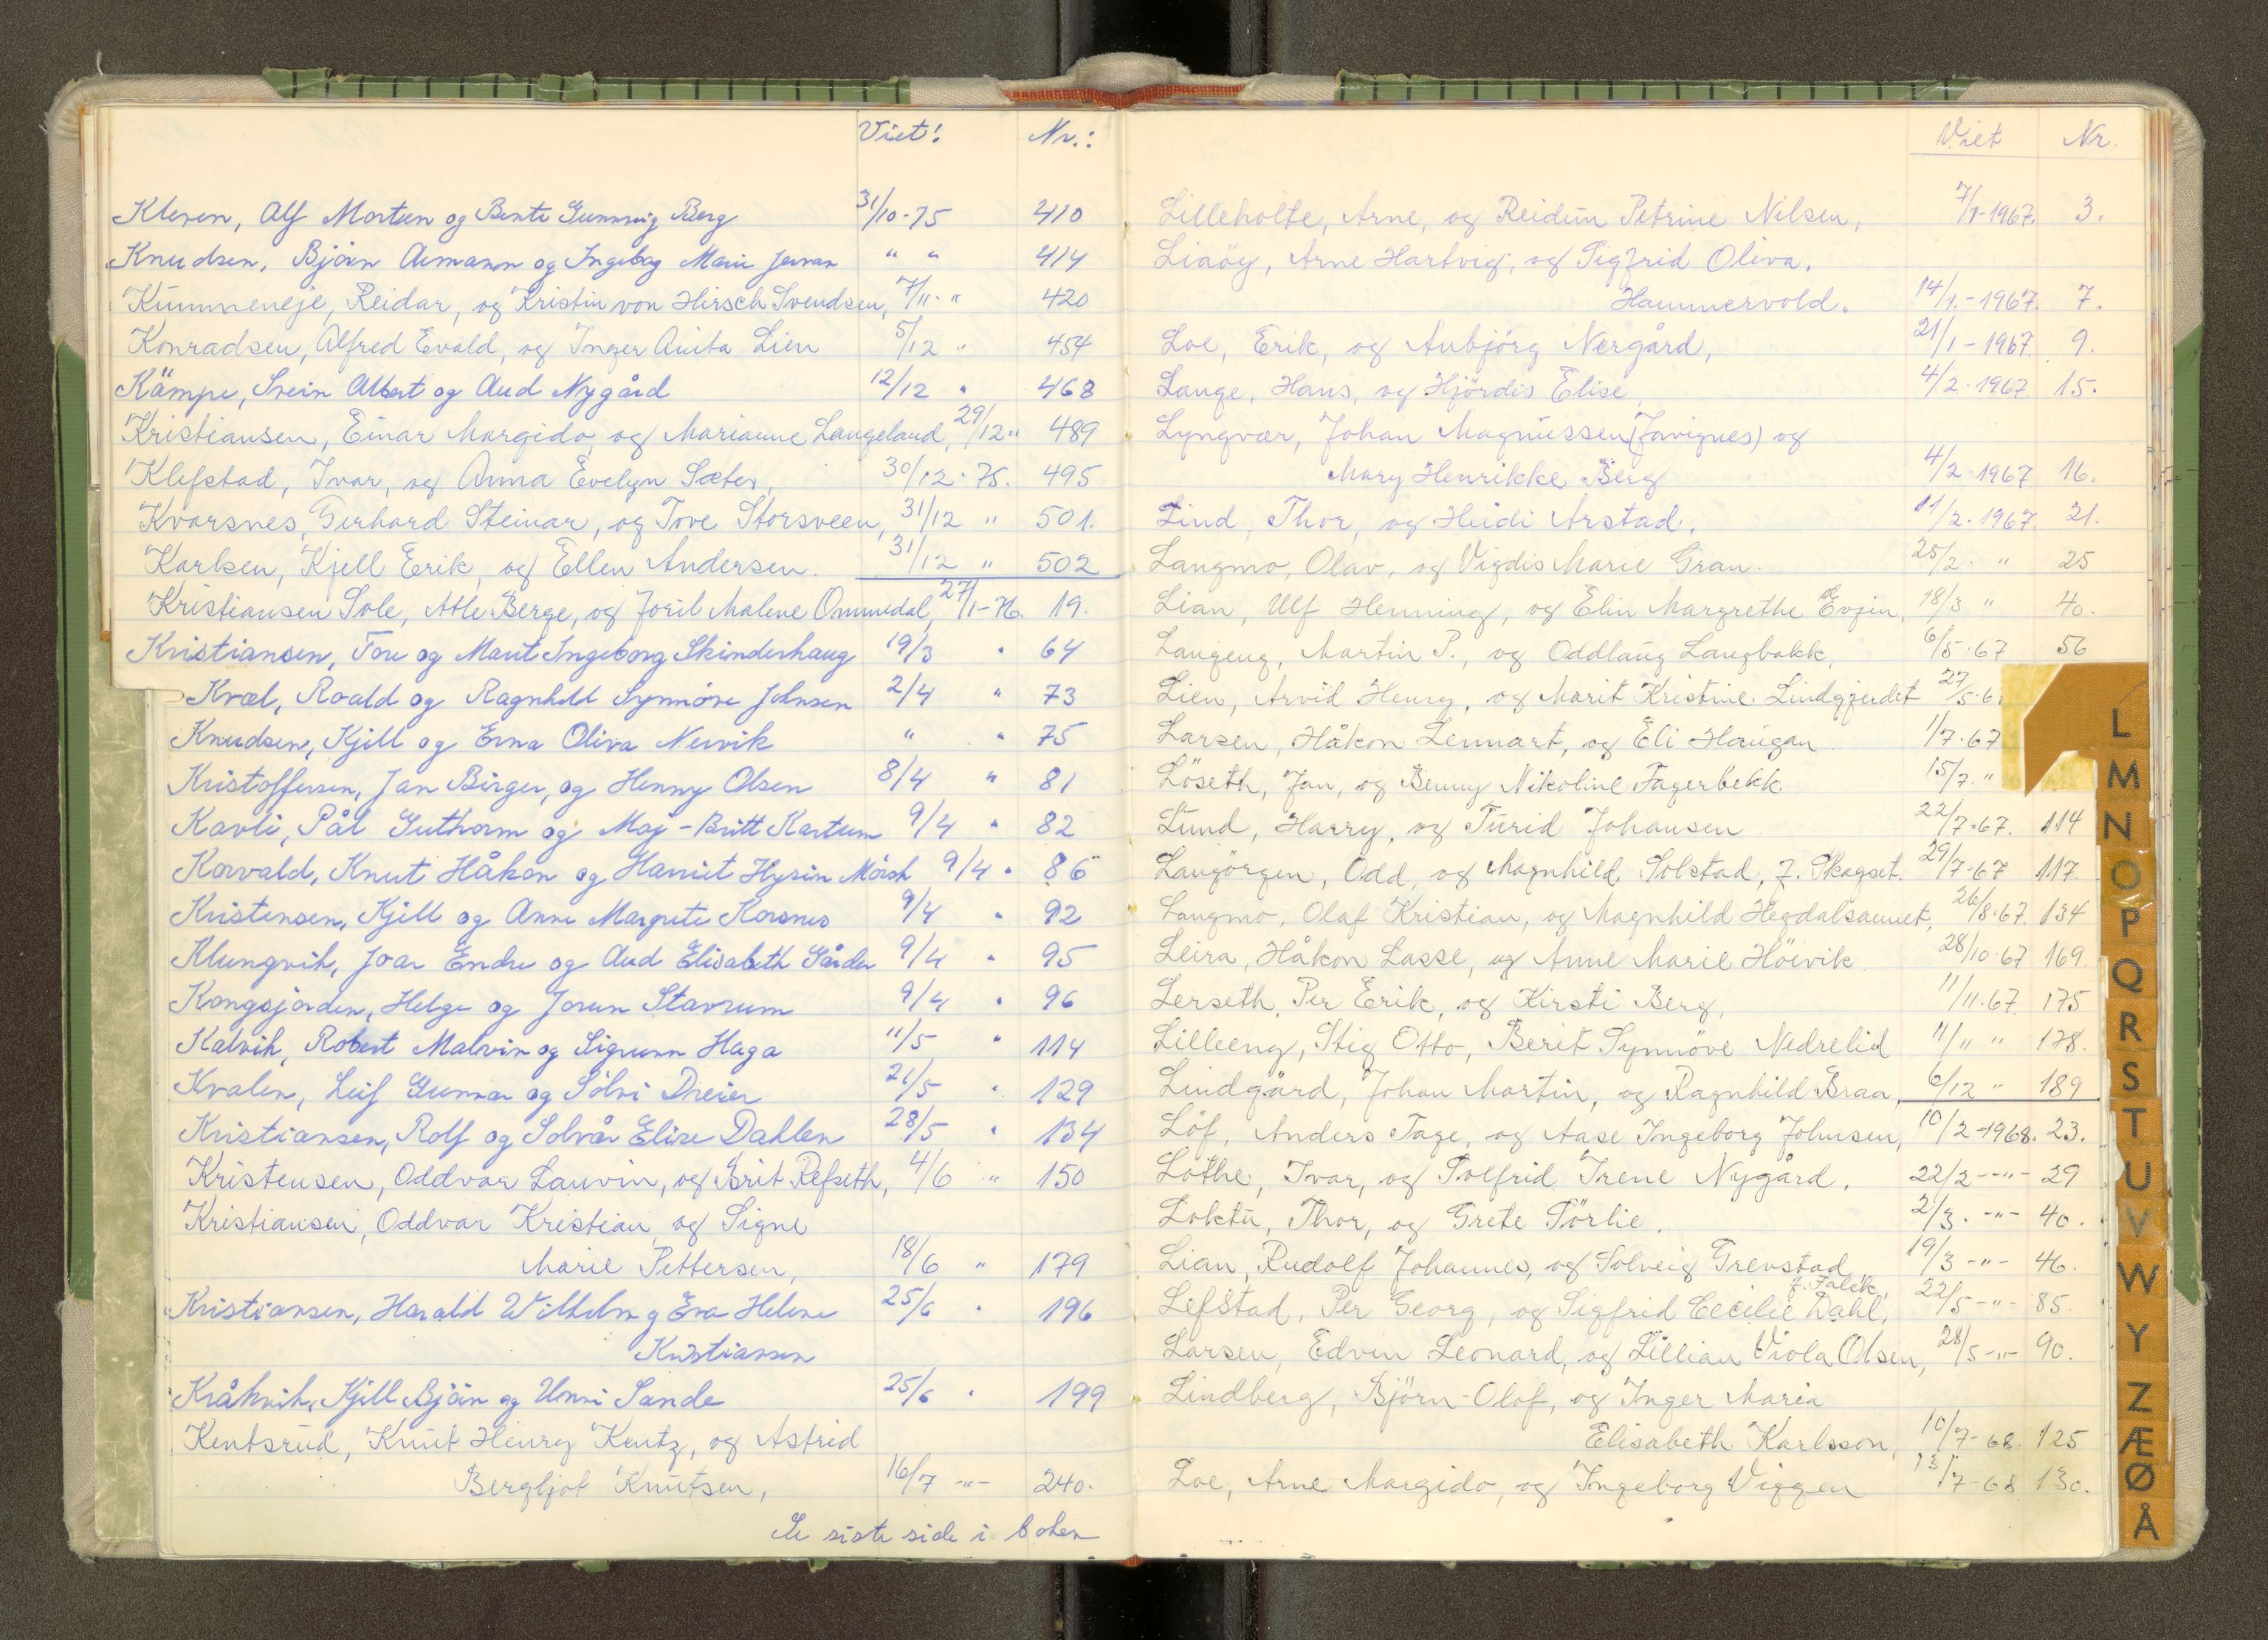 Viet: Nr.:
Kleven, Alf Morten og Bente Gunnvig Berg 31/10-75 410
Knudsen, Bjørn Armann og Ingebog Marie " " 414
Kummeneje, Reidar, og Kristin von Hirsch Svendsen, 7/11 " 420
Konradsen, Alfred Evald, og Inger Anita Lien 5/12 " 454
Kämpe, Svein Albert og Aud Nygård 12/12 " 468
Kristiansen, Einar Margido, og Marianne Langeland, 29/12 " 489
Klefstad, Ivar, og Anna Evelyn Sæter, 30/12-75. 495
Kvarsnes, Gerhard Steinar, og Tove Storsveen, 31/12 " 501.
Karlsen, Kjell Erik, og Ellen Andersen. 31/12 " 502
Kristiansen Sole, Atle Berge, og Joril Malene Ommedal, 27/1-76. 19.
Kristiansen, Tore og Marit Ingeborg Skinderhaug 19/3 " 64
Kvæl, Roald og Ragnhild Synnöve Johnsen 2/4 " 73
Knudsen, Kjell og Erna Oliva Nervik " " 75
Kristoffersen, Jan Birger, og Henny Olsen 8/4 " 81
Kavli, Pål Guthorm og Maj-Britt Kartum 9/4 " 82
Korvald, Knut Håkon og Harriet Hysin Mörch 9/4 " 86
Kristensen, Kjell og Anne Margrete Korsnes 9/4 " 92
Klungvik, Joar Endre og Aud Elisabeth Gårder 9/4 " 95
Kongsjorden, Helge og Jorun Stavrum 9/4 " 96
Kalvik, Robert Malvin og Sigrunn Haga 11/5 " 114
Kvalen, Leif Gunnar og Sölvi Dreier 21/5 " 129
Kristiansen, Rolf og Solvår Elise Dahlen 28/5 " 134
Kristensen, Oddvar Lauvin, og Brit Refseth, 4/6 " 150
Kristiansen, Oddvar Kristian, og Signe
Marie Pettersen, 18/6 " 179
Kristiansen, Harald Wilhelm og Eva Helene 25/6 " 196
Kristiansen
Kråkvik, Kjell Bjørn og Unni Sande 25/6 " 199
Kentsrud, Knut Henry Kentz, og Astrid
Bergljot Knutsen, 16/7 -"- 240.
Se siste side i boken
Viet Nr.
Lilleholte, Arne, og Reidun Petrine Nilsen, 7/1-1967. 3.
Liaöy, Arne Hartvig, og Sigfrid Oliva.
Hammervold. 14/1.-1967. 7.
Loe, Erik, og Aubjörg Nergård, 21/1-1967. 9.
Lange, Hans, og Hjördis Elise, 4/2-1967. 15.
Lyngvær, Johan Magnussen (Javignes) og
Mary Henrikke Berg 4/2-1967 16.
Lind, Thor, og Heidi Arstad. 11/2-1967. 21.
Langmo, Olav, og Vigdis Marie Gran. 25/2. " 25
Lian, Ulf Henning, og Elin Margrethe Evjen, 18/3 " 40.
Langeng, Martin P., og Oddlaug Langbakk, 6/5-67 56
Lien, Arvid Henry, og Marit Kristine Lindgjerdet 27/5-6
Larsen, Håkon Lennart, og Eli Haugan 1/7-67
Löseth, Jan, og Benny Nikoline Fagerbekk. 15/7. "
Lund, Harry, og Turid Johansen 22/7-67. 114
Langörgen, Odd, og Magnhild Solstad, f. Skogset. 29/7-67 117.
Langmo, Olaf Kristian, og Magnhild Hegdalsaunet, 26/8-67. 134
Leira, Håkon Lasse, og Anne Marie Höivik 28/10-67 169.
Lerseth, Per Erik, og Kirsti Berg, 11/11.67. 175
Lilleeng, Stig Otto, Berit Synnöve Nedrelid 11/11 " 178.
Lindgård, Johan Martin, og Ragnhild Braa, 6/12 " 189
Löf, Anders Tage, og Aase Ingeborg Johnsen, 10/2-1968. 23.
Lothe, Ivar, og Solfrid Irene Nygård. 22/2 -"- 29
Loktu, Thor, og Grete Törlie. 2/3. -"- 40.
Lian, Rudolf Johannes, og Solveig Trevstad 19/3 -"- 46.
Lefstad, Per Georg, og Sigfrid Cecilie Dahl, 22/5 -"- 85.
Larsen, Edvin Leonard, og Lillian Viola Olsen, 28/5 -"- 90.
Lindberg, Björn-Olof, og Inger Maria
Elisabeth Karlsson, 10/7-68. 125
Loe, Arne Margido, og Ingeborg Viggen 13/7-68 130.
L
M
N
O
P
Q
R
S
T
U
V
W
Y
Z
Æ
Ø
Å